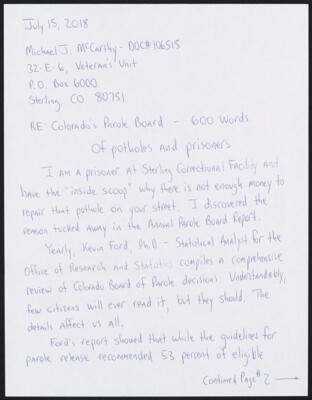 July 15, 2018
Michael J. McCarthy - DOC#106515
32-E-6, Veteran's Unit
P.O. Box 6000
Sterling, CO 80751
RE: Colorado's Parole Board - 600 Words
Of potholes and prisoners
I am a prisoner at Sterling Correctional Facility and
have the "inside scoop" why there is not enough money to
repair that pothole on your street. I discovered the
reason tucked away in the Annual Parole Board Report.
Yearly, Kevin Ford, Ph.D - Statistical Analyst for the
Office of Research and Statistics compiles a comprehensive
review of Colorado Board of Parole decisions. Understandably,
few citizens will ever read it, but they should. The
details affect us all.
Ford's report showed that while the guidelines for
parole release recommended 53 percent of eligible
Continued Page # 2 →